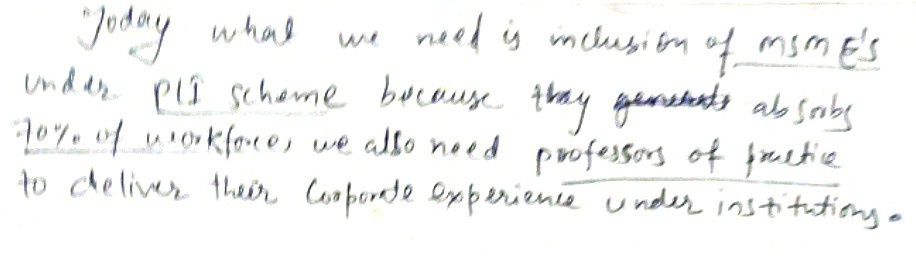 Today what we need is inclusion of MSME's
under PLI scheme because they absorbs
70% of workforce, we also need professors of practice
to deliver their Corporate experience under institutions.